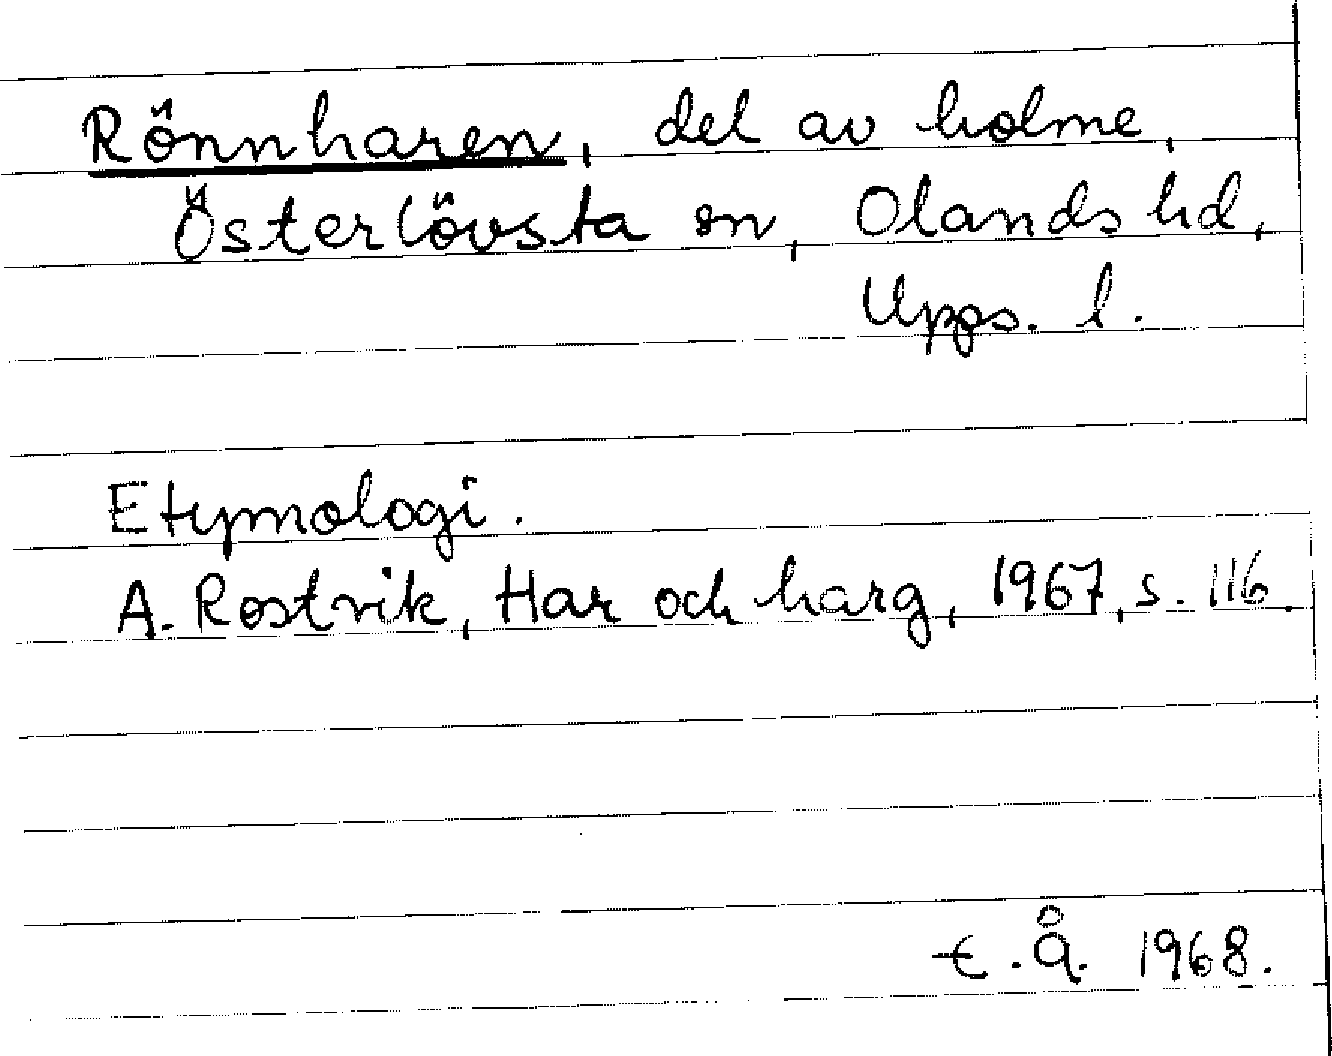 Rönnharen, del av holme,
Österlövsta sn, Olands hd,
Upps. l.
Etymologi.
A. Rostvik, Har och harg, 1967, s. 116.
E. Å. 1968.